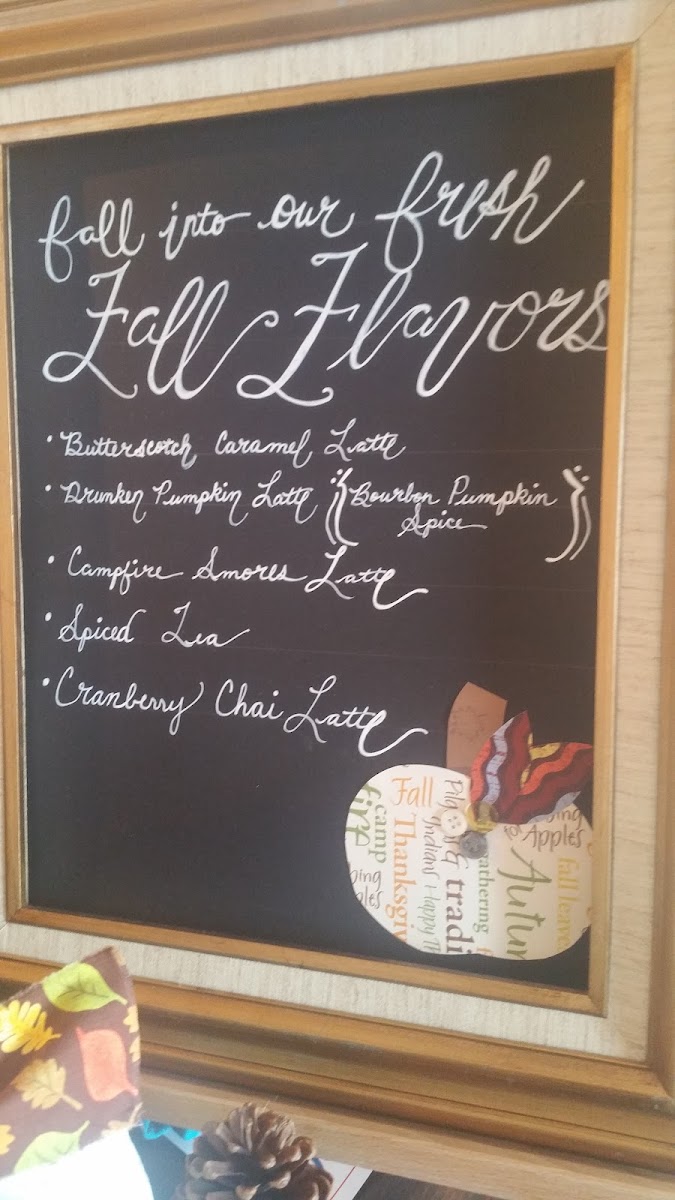 fall into our fresh
Fall Flavors
• Butterscotch Caramel Latte
• Drunken Pumpkin Latte {(Bourbon Pumpkin
Spice)}
• Campfire Smores Latte
• Spiced Tea
• Cranberry Chai Latte
Fall
Thanksgiv
fire
camp
ping
ples
Pilg
Indians
Happy T
& tradi
gathering
f
Autum
ing
Apples
fall leave